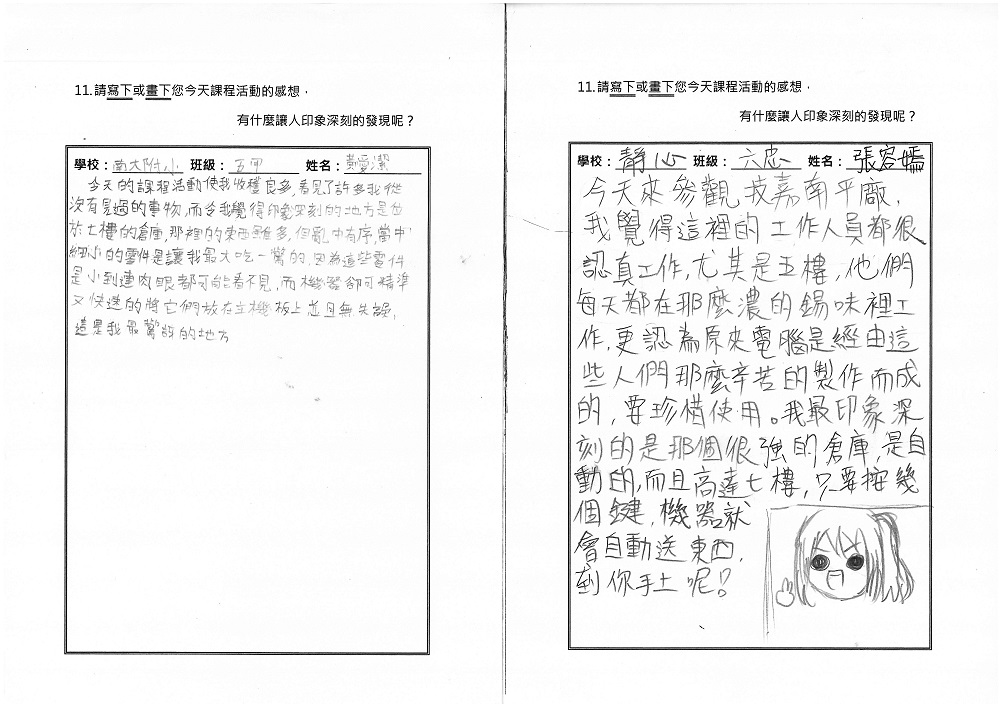 11.請寫下或畫下您今天課程活動的感想，
有什麼讓人印象深刻的發現呢？
學校：南大附小 班級：五甲 姓名：黃愛潔
今天的課程活動使我收穫良多，看見了許多我從
沒有見過的事物，而令我覺得印象深刻的地方是位
於七樓的倉庫，那裡的東西雖多，但亂中有序，當中
細小的零件是讓我最大吃一驚的，因為這些零件
是小到連肉眼都可能看不見，而機器卻可精準
又快速的將它們放在主機板上並且無失誤，
這是我最驚訝的地方
11.請寫下或畫下您今天課程活動的感想，
有什麼讓人印象深刻的發現呢？
學校：靜心 班級：六忠 姓名：張容嫣
今天來參觀技嘉南平廠，
我覺得這裡的工作人員都很
認真工作，尤其是五樓，他們
每天都在那麼濃的錫味裡工
作，更認為原來電腦是經由這
些人們那麼辛苦的製作而成
的，要珍惜使用。我最印象深
刻的是那個很強的倉庫，是自
動的，而且高達七樓，只要按幾
個鍵，機器就
會自動送東西，
到你手上呢？